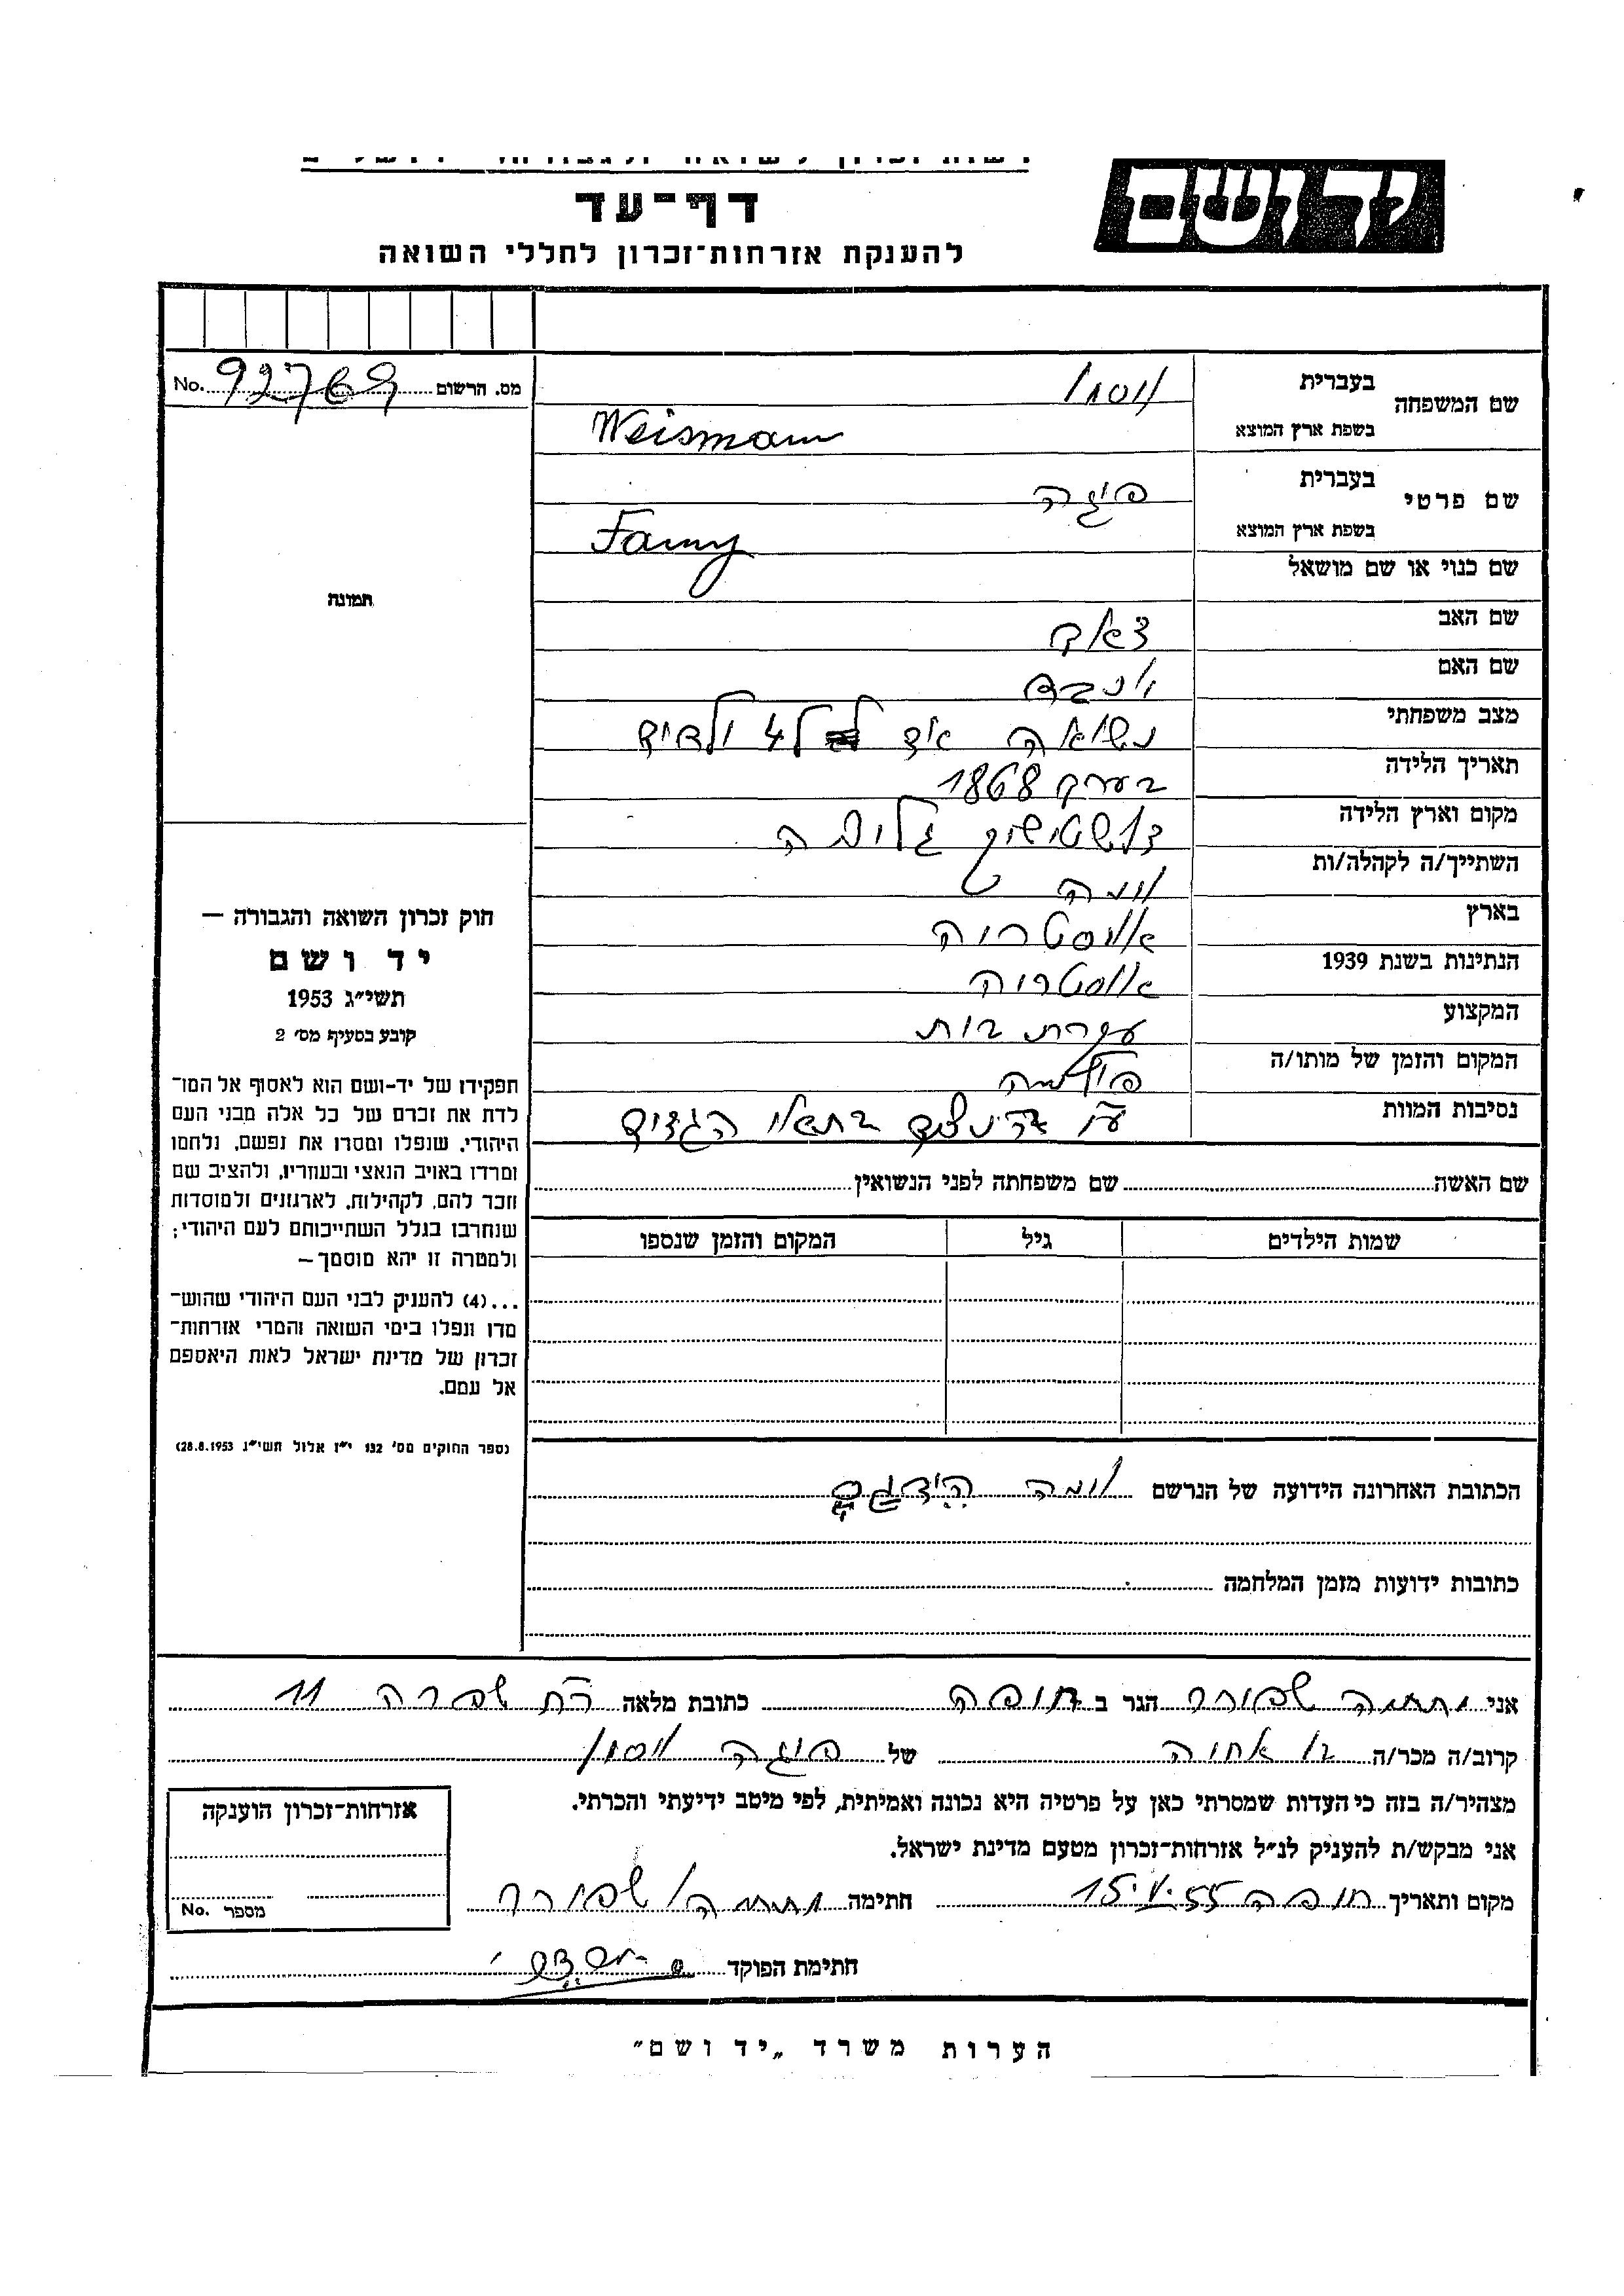 יד ושם
דף-עד
להענקת אזרחות-זכרון לחללי השואה
שם המשפחה
בעברית
ויסמן
בשפת ארץ המוצא
Weismann
מס. הרשום 92769 No.
שם פרטי
בעברית
פיגה
בשפת ארץ המוצא
Fanny
שם כנוי או שם מושאל
תמונה
שם האב
שם האם
יוכבד
מצב משפחתי נשואה אם ל 4 ילדים
תאריך הלידה בערך 1868
מקום וארץ הלידה
השתייך/ה לקהלה/ות וינה
בארץ אוסטריה
הנתינות בשנת 1939 אוסטריה
המקצוע עקרת בית
המקום והזמן של מותו/ה
נסיבות המוות
חוק זכרון השואה והגבורה –
יד ושם
תשי״ג 1953
קובע בסעיף מס׳ 2
תפקידו של יד-ושם הוא לאסוף אל המו־
לדת את זכרם של כל אלה מבני העם
היהודי, שנפלו ומסרו את נפשם, נלחמו
ומרדו באויב הנאצי ובעוזריו, ולהציב שם
וזכר להם, לקהילות, לארגונים ולמוסדות
שנחרבו בגלל השתייכותם לעם היהודי;
ולמטרה זו יהא מוסמך –
...(4) להעניק לבני העם היהודי שהוש־
מדו ונפלו בימי השואה והמרי אזרחות־
זכרון של מדינת ישראל לאות היאספם
אל עמם.
(ספר החוקים מס׳ 132 י״ז אלול תשי״ג 28.8.1953)
שם האשה שם משפחתה לפני הנשואין
שמות הילדים גיל המקום והזמן שנספו
הכתובת האחרונה הידועה של הנרשם וינה
כתובות ידועות מזמן המלחמה
אני נחמיה שפירר הגר ב חיפה כתובת מלאה רח שפרה 11
קרוב/ה מכר/ה בן אחיה של פיגה ויסמן
מצהיר/ה בזה כי העדות שמסרתי כאן על פרטיה היא נכונה ואמיתית, לפי מיטב ידיעתי והכרתי.
אני מבקש/ת להעניק לנ״ל אזרחות-זכרון מטעם מדינת ישראל.
מקום ותאריך חיפה 15.V.55 חתימה
חתימת הפוקד
אזרחות-זכרון הוענקה
מספר No.
הערות משרד „יד ושם״